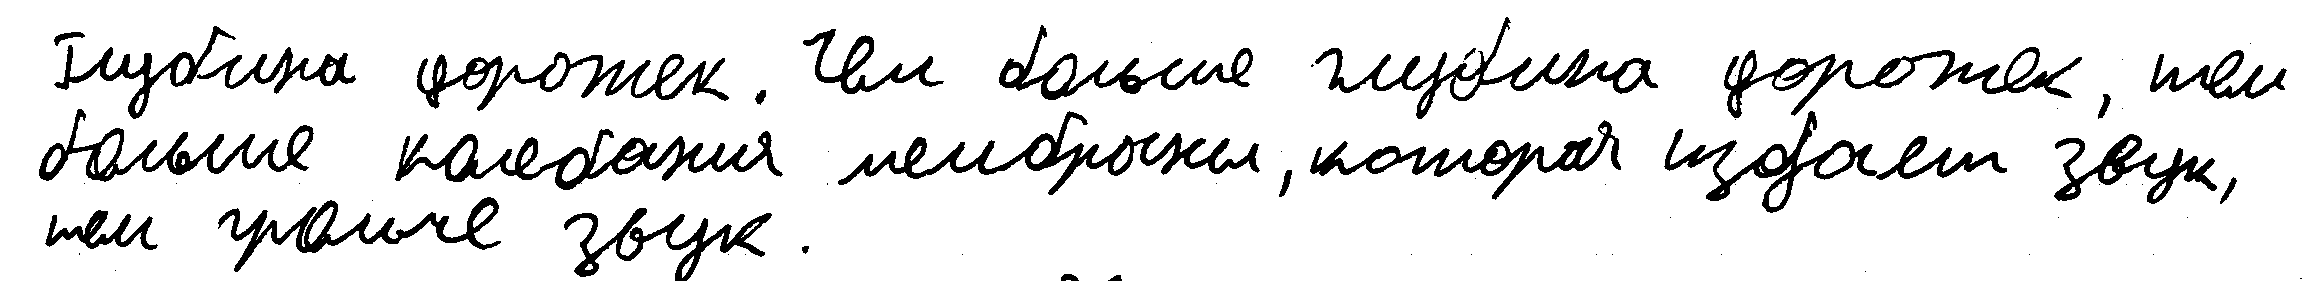 Глубина дорожек. Чем больше глубина дорожек, тем
больше колебания мембраны, которая издает звук,
тем громче звук.